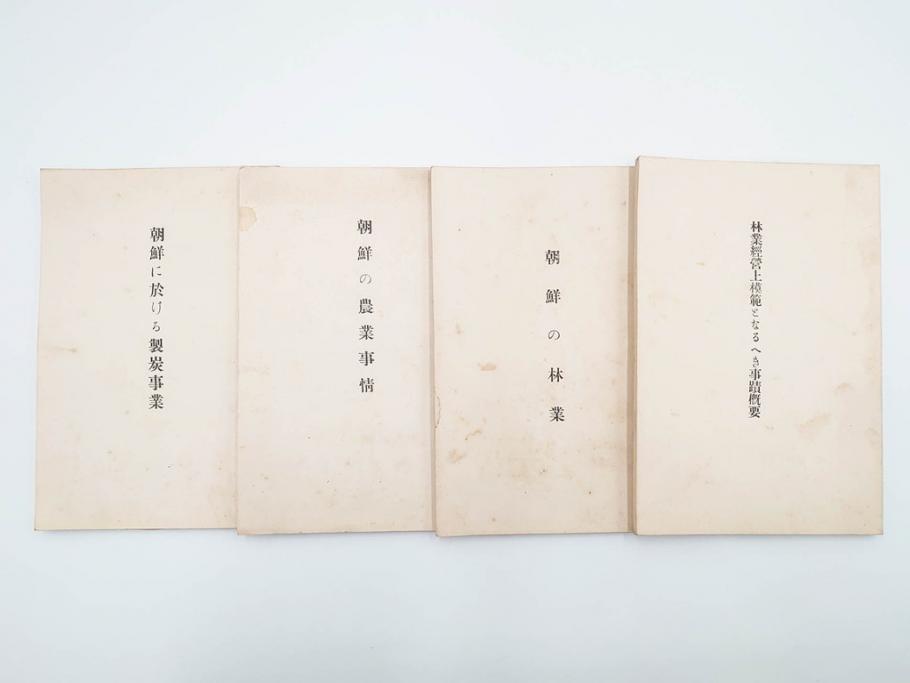 朝鮮に於ける製炭事業
朝鮮の農業事情
朝鮮の林業
林業經營上模範となるへき事蹟概要